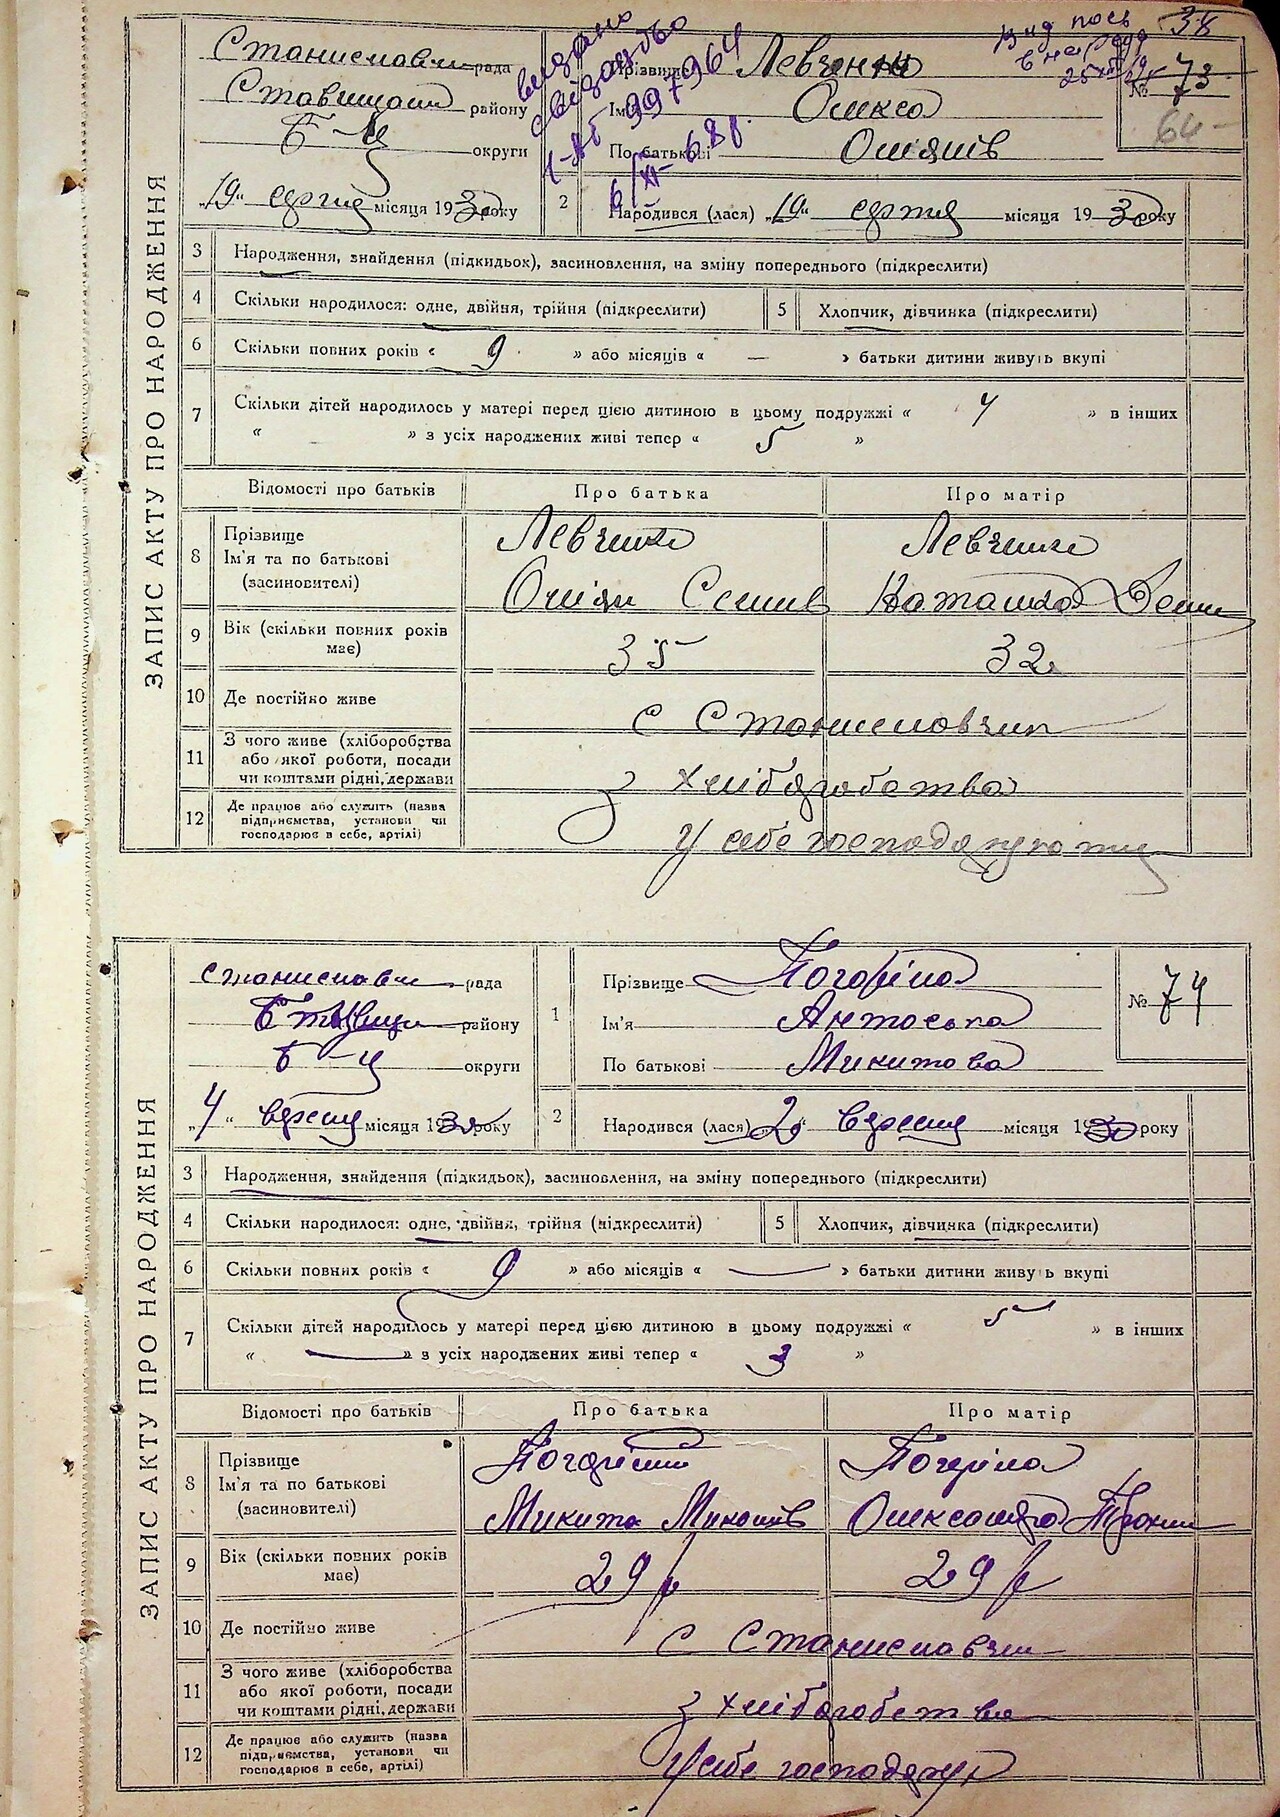 38
ЗАПИС АКТУ ПРО НАРОДЖЕННЯ
рада
району
Б-Ц округи
видано
свідоцтво
997964
Прізвище Левченко
Ім'я Олекса
По батькові
№ 73
64
„19“ серпня місяця 1930 року
2 Народився (лася) „19“ серпня місяця 1930 року
3 Народження, знайдення (підкидьок), засиновлення, на зміну попереднього (підкреслити)
4 Скільки народилося: одне, двійня, трійня (підкреслити) 5 Хлопчик, дівчинка (підкреслити)
6 Скільки повних років « 9 » або місяців « — » батьки дитини живуть вкупі
7 Скільки дітей народилось у матері перед цією дитиною в цьому подружжі « 4 » в інших
« » з усіх народжених живі тепер « 5 »
Відомості про батьків Про батька Про матір
8 Прізвище Левченко Левченко
Ім'я та по батькові
(засиновителі) Наташка
9 Вік (скільки повних років має) 35 32
10 Де постійно живе с Станиславчик
11 З чого живе (хліборобства або якої роботи, посади чи коштами рідні, держави з хліборобства
12 Де працює або служить (назва підприємства, установи чи господарює в себе, артілі) У себе господарюють
ЗАПИС АКТУ ПРО НАРОДЖЕННЯ
рада
району
Б-Ц округи
1 Прізвище Погоріла
Ім'я Антоська
По батькові Микитова
№ 74
„4“ вересня місяця 1930 року
2 Народився (лася) „2“ вересня місяця 1930 року
3 Народження, знайдення (підкидьок), засиновлення, на зміну попереднього (підкреслити)
4 Скільки народилося: одне, двійня, трійня (підкреслити) 5 Хлопчик, дівчинка (підкреслити)
6 Скільки повних років « 9 » або місяців « — » батьки дитини живуть вкупі
7 Скільки дітей народилось у матері перед цією дитиною в цьому подружжі « 5 » в інших
« — » з усіх народжених живі тепер « 3 »
Відомості про батьків Про батька Про матір
8 Прізвище Погорілий Погоріла
Ім'я та по батькові
(засиновителі) Микита Миколів Олександра
9 Вік (скільки повних років має) 29 р 29 р
10 Де постійно живе с Станиславчик
11 З чого живе (хліборобства або якої роботи, посади чи коштами рідні, держави з хліборобства
12 Де працює або служить (назва підприємства, установи чи господарює в себе, артілі) У себе господарую